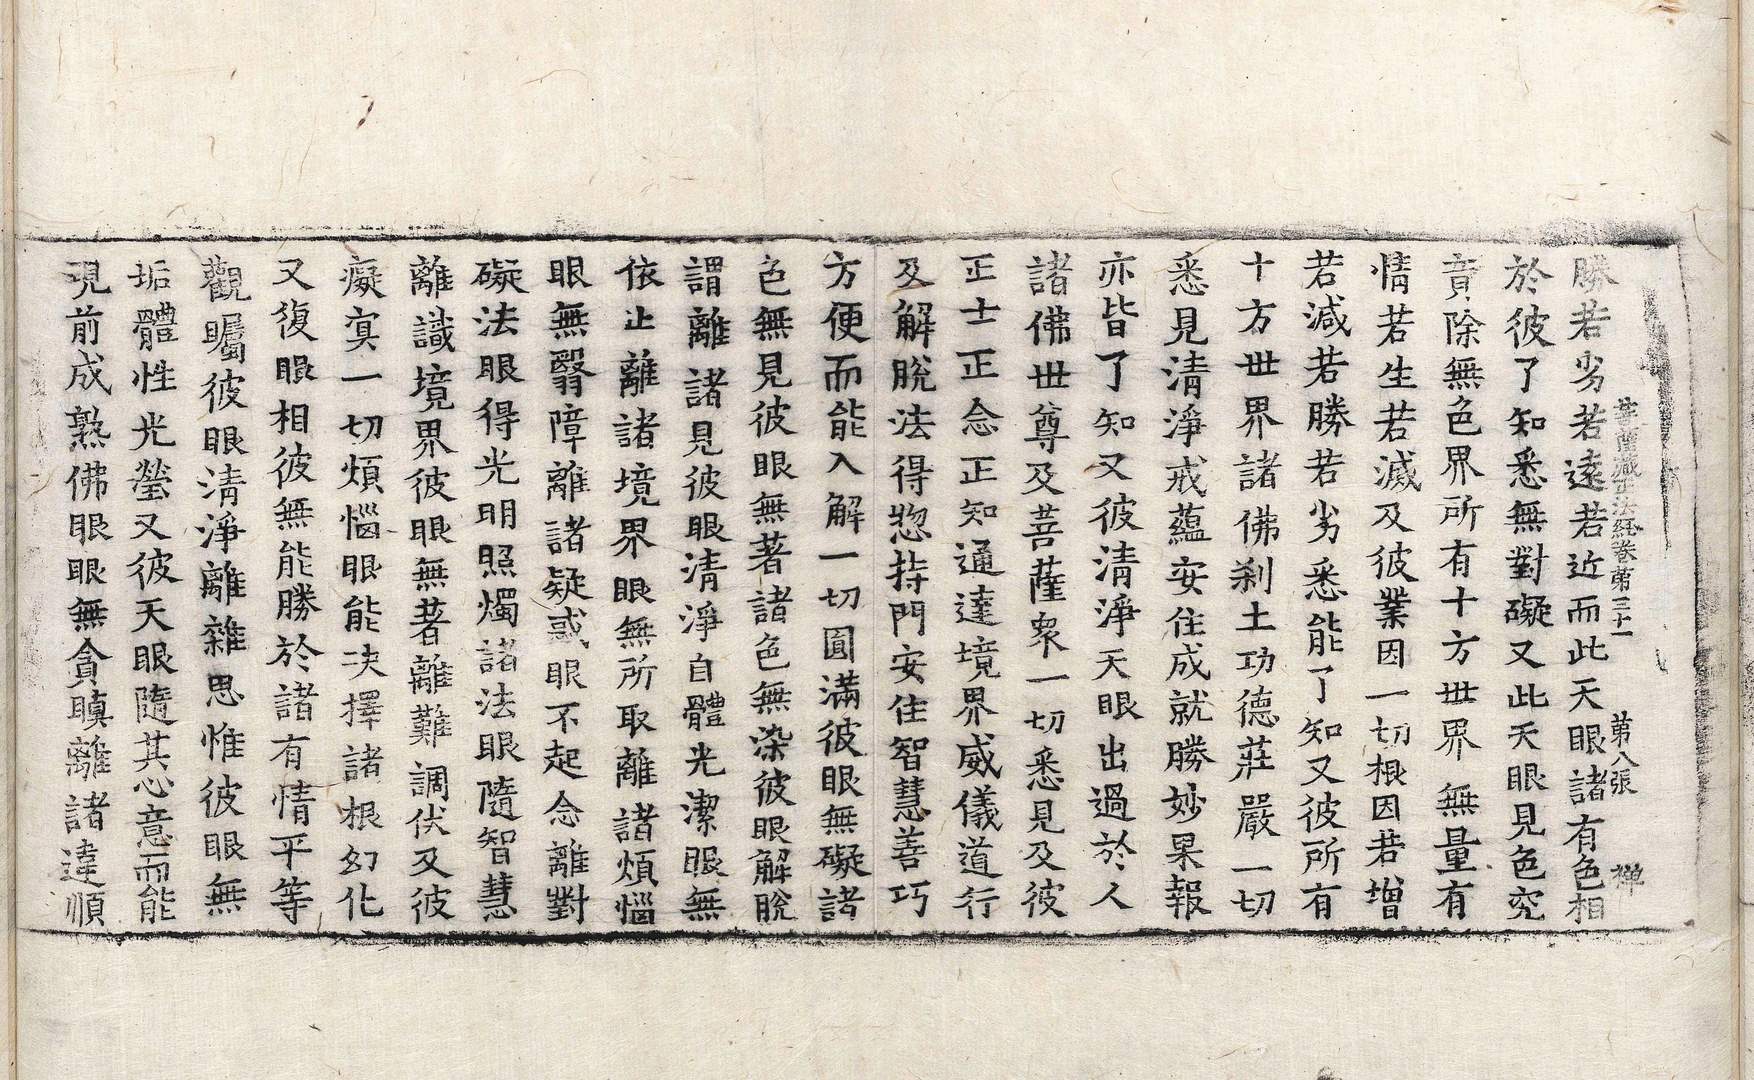 菩薩藏正法經卷第三十一　第八張　禅
勝若劣若遠若近而此天眼諸有色相
於彼了知悉無對礙又此天眼見色究
竟除無色界所有十方世界無量有
情若生若滅及彼業因一切根因若增
若減若勝若劣悉能了知又彼所有
十方世界諸佛刹土功德莊嚴一切
悉見清淨戒蘊安住成就勝妙果報
亦皆了知又彼清淨天眼出過於人
諸佛世尊及菩薩衆一切悉見及彼
正士正念正知通達境界威儀道行
及解脫法得惣持門安住智慧善巧
方便而能入解一切圓滿彼眼無礙諸
色無見彼眼無著諸色無染彼眼解脫
謂離諸見彼眼清淨自體光潔眼無
依止離諸境界眼無所取離諸煩惱
眼無翳障離諸疑惑眼不起念離對
礙法眼得光明照燭諸法眼隨智慧
離識境界彼眼無著離難調伏及彼
癡㝠一切煩惱眼能决擇諸根幻化
又復眼相彼無能勝於諸有情平等
觀矚彼眼清淨離雜思惟彼眼無
垢體性光瑩又彼天眼隨其心意而能
現前成熟佛眼眼無貪瞋離諸違順